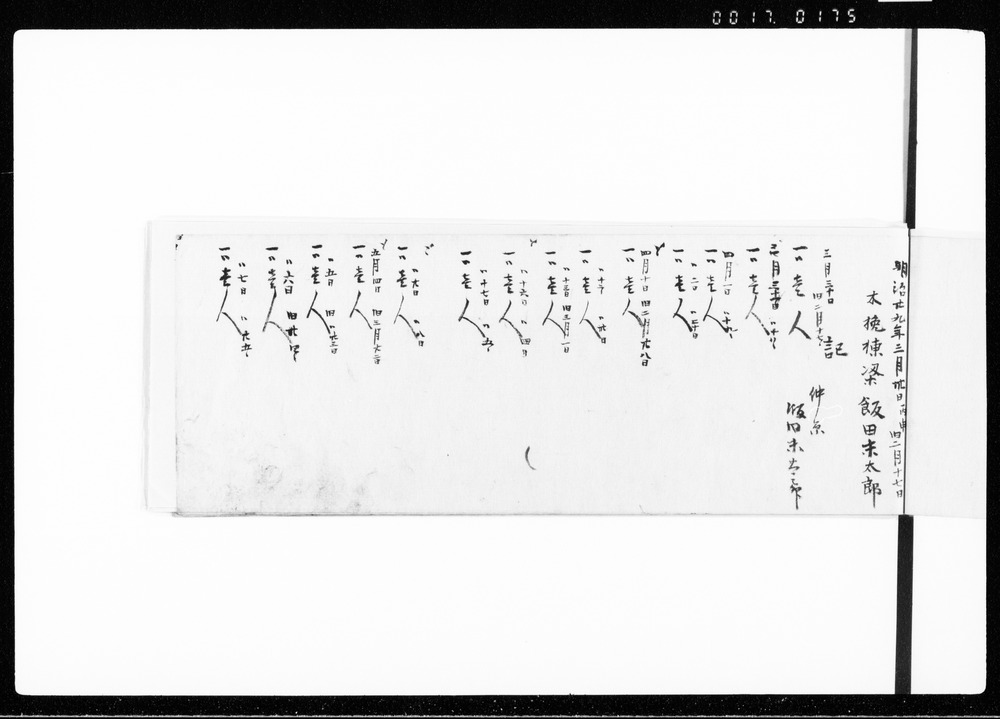 0017 0175
明治廿九年三月卅日丙申旧二月十七日
木挽棟梁飯田末太郎
記
三月三十日 旧二月十七日
仲原
飯田末太郎
一〃壱人
一〃壱人
四月一日 〃十九日
一〃壱人
〃二日 〃二十日
一〃壱人
四月十日 旧二月廿八日
一〃壱人
一〃壱人
〃十三日 旧三月一日
一〃壱人
〃十六日 〃四日
一〃壱人
〃十七日 〃五日
一〃壱人
一〃壱人
五月四日 旧三月廿二日
一〃壱人
〃五日 旧〃廿三日
一〃壱人
〃六日 旧廿四日
一〃壱人
〃七日 〃廿五日
一〃壱人